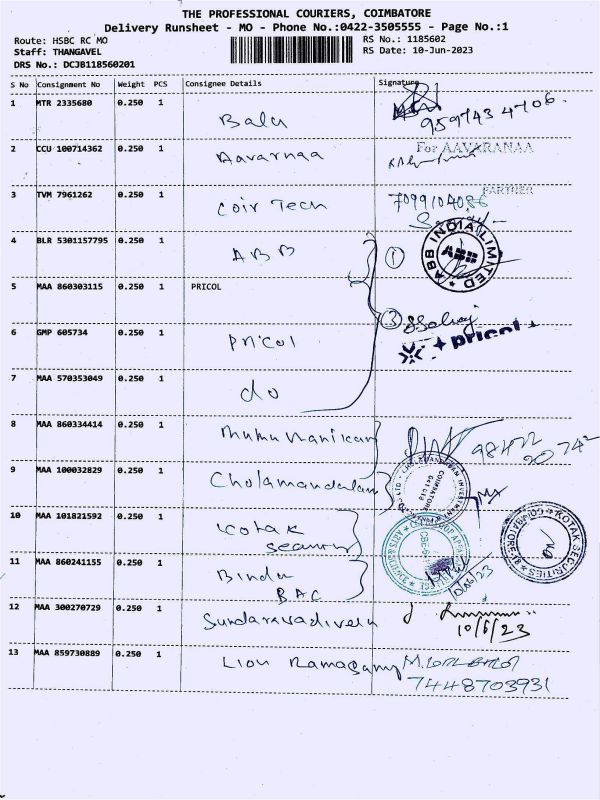 THE PROFESSIONAL COURIERS, COIMBATORE
Delivery Runsheet - MO - Phone No.:0422-3505555 - Page No.:1
Route: HSBC RC MO
Staff: THANGAVEL
DRS No.: DCJB118560201
RS No.: 1185602
RS Date: 10-Jun-2023
S No Consignment No Weight PCS Consignee Details Signature
1 MTR 2335680 0.250 1 Balu
2 CCU 100714362 0.250 1 Aavarnaa For AAVARANAA
PARTNER
3 TVM 7961262 0.250 1 Coir Tech 7099104086
4 BLR 5301157795 0.250 1 ABB 1 ABB INDIA LIMITED ABB
5 MAA 860303115 0.250 1 PRICOL
3
6 GMP 605734 0.250 1 Pricol pricol
7 MAA 570353049 0.250 1 do
8 MAA 860334414 0.250 1
9 MAA 100032829 0.250 1 Cholamandalam
COIMBATORE
10 MAA 101821592 0.250 1 Kotak KOTAK SECURITIES
11 MAA 860241155 0.250 1 Bindu
BAC 10/06/23
12 MAA 300270729 0.250 1 Sundaravadivelu
10/6/23
13 MAA 859730889 0.250 1 Lion Ramasamy
7448703931